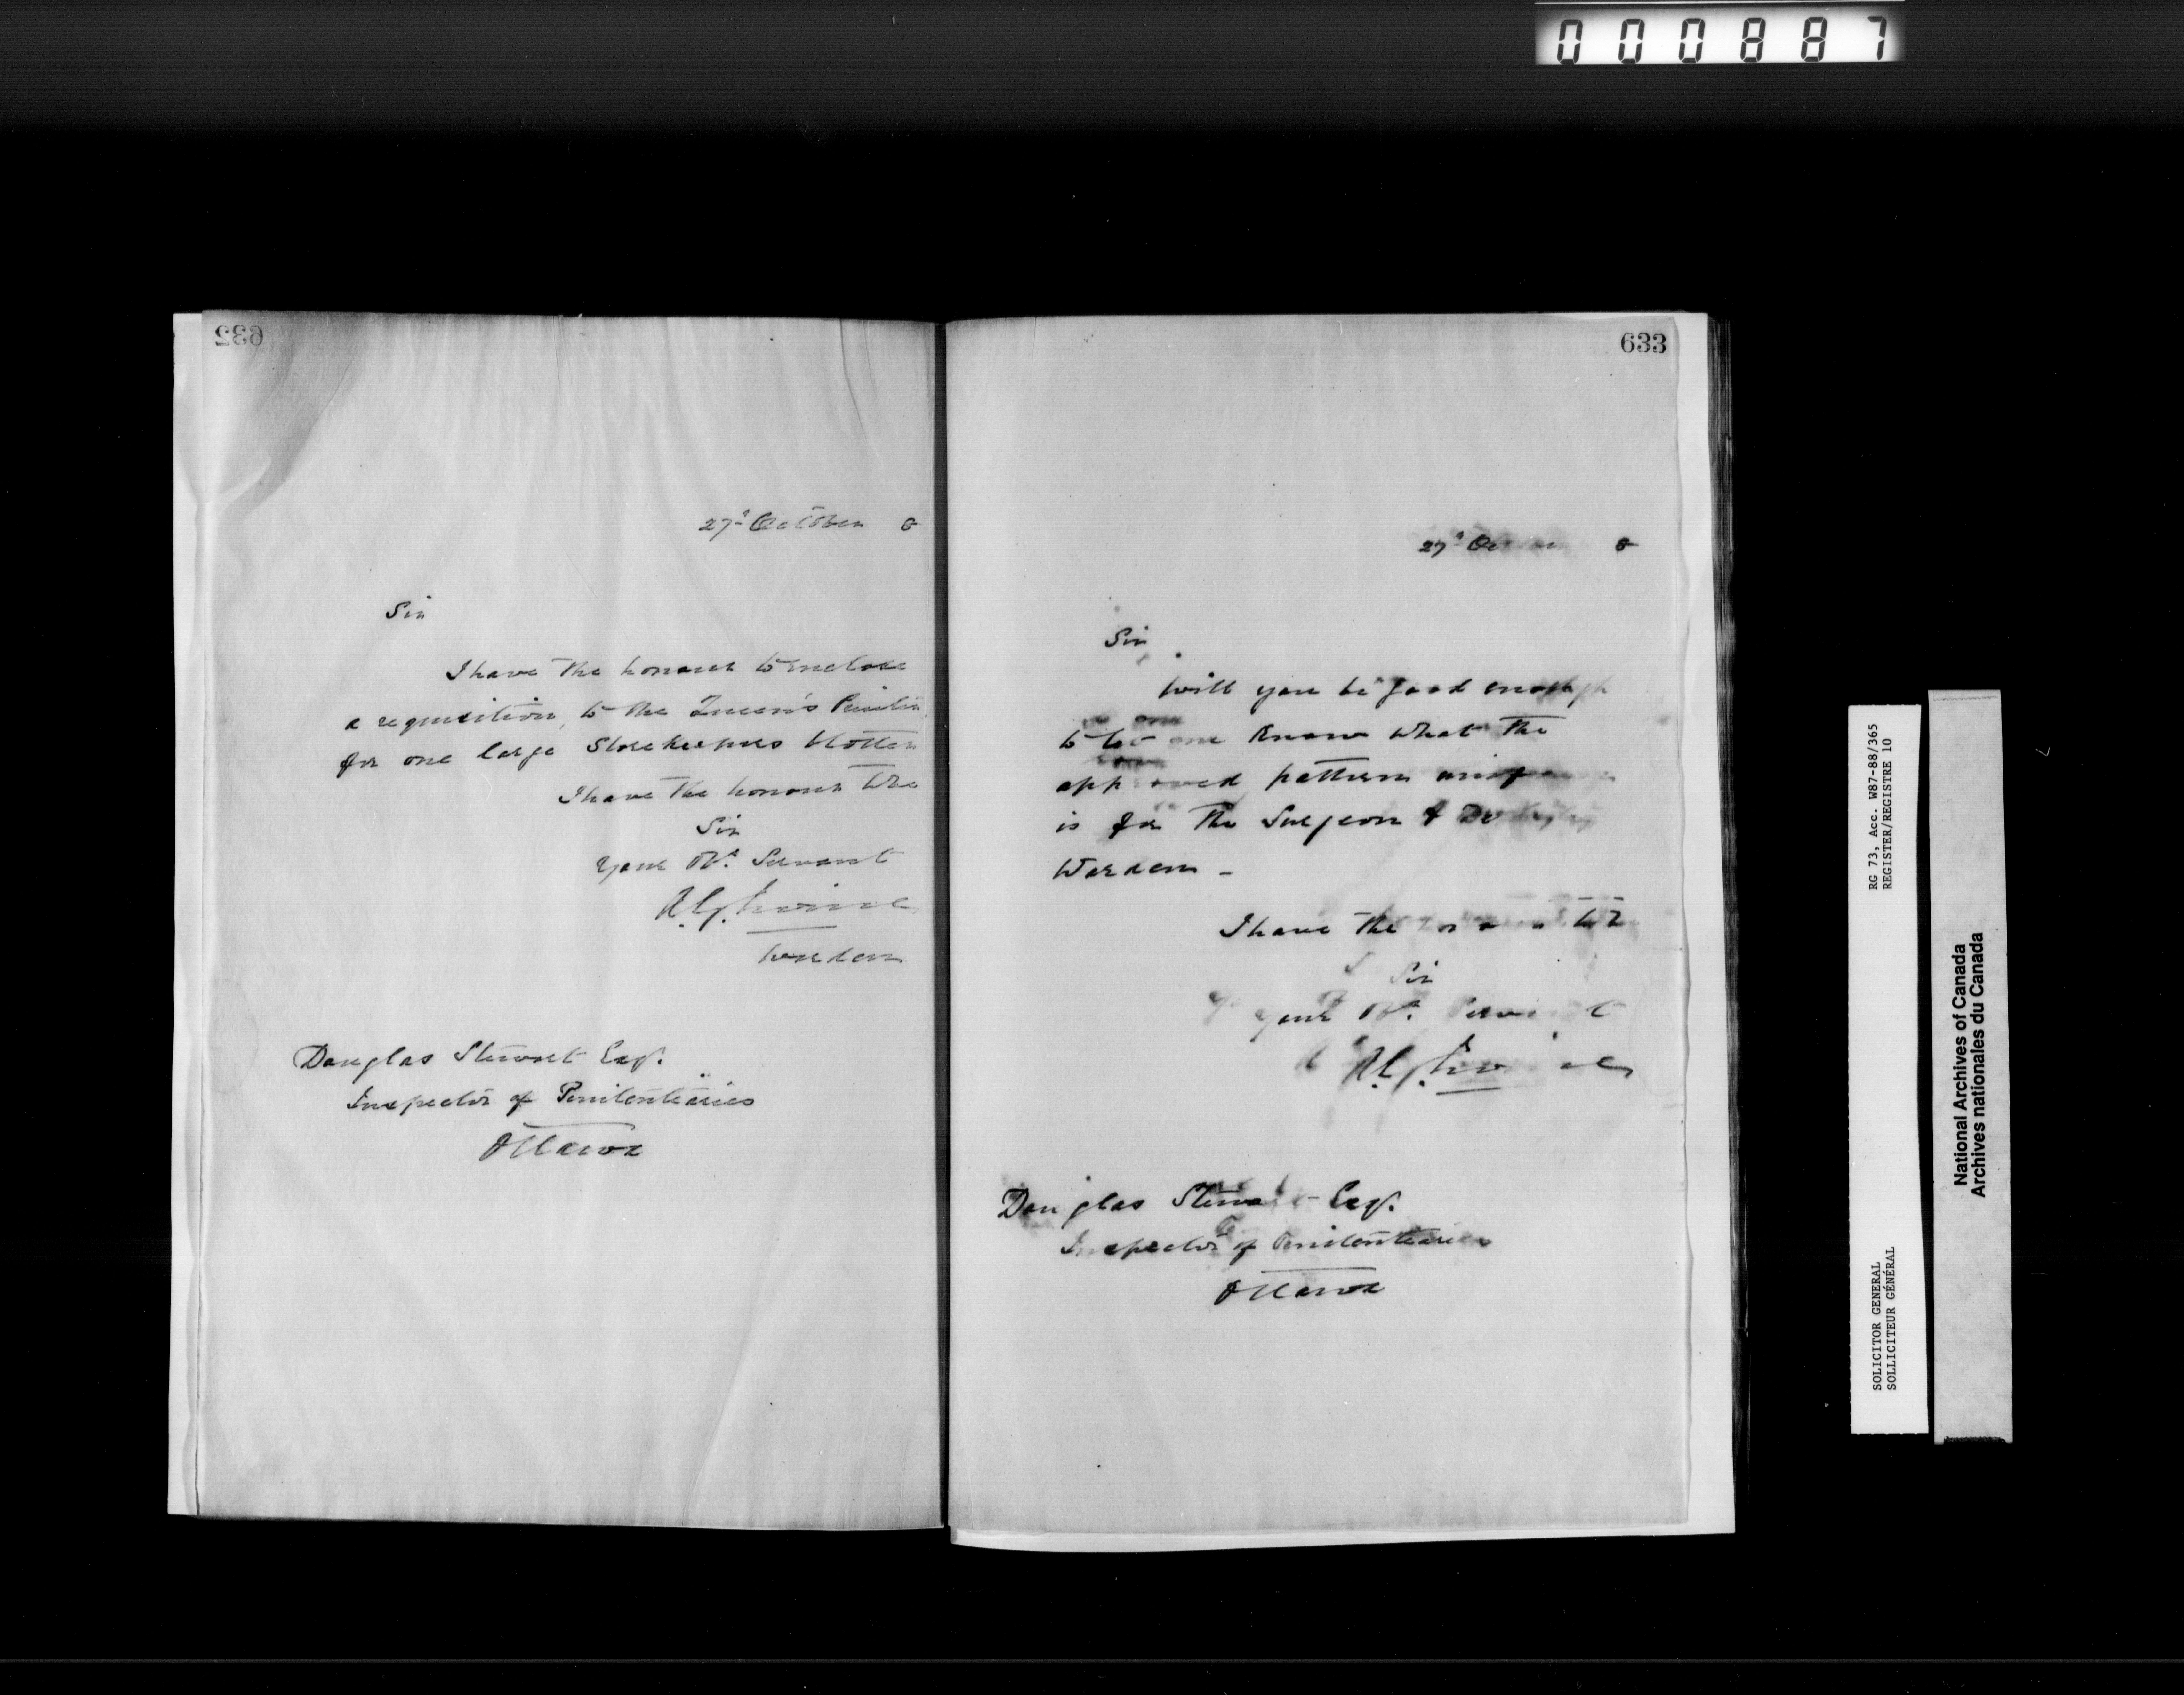 000887
632
27th October 8
Sir
I have the honour to enclose
a requisition, to the Queen's Printer
for one large Storekeepers blotter
I have the honour to be
Sir
Your Obt. Servant
A.G. Irvine
Warden
Douglas Stewart Esq.
Inspector of Penitentiaries
Ottawa
633
27th October 8
Sir
Will you be good enough
to let me know what the
approved pattern uniform
is for the Surgeon & Deputy
Warden -
I have the honour to be
Sir
Your Obt. Servant
A.G. Irvine
Douglas Stewart Esq.
Inspector of Penitentiaries
Ottawa
RG 73, Acc. W87-88/365
REGISTER/REGISTRE 10
SOLICITOR GENERAL
SOLLICITEUR GÉNÉRAL
National Archives of Canada
Archives nationales du Canada